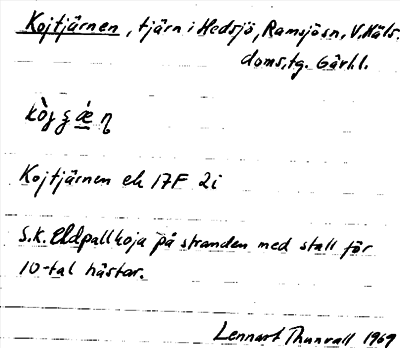 Kojtjärnen, tjärn i Hedsjö, Ramsjö sn, V. Häls.
doms. tg. Gävl. l.
Kojtjärnen ek 17F 2i
S.k. Eldpallkoja på stranden med stall för
10-tal hästar.
Lennart Thunvall 1969